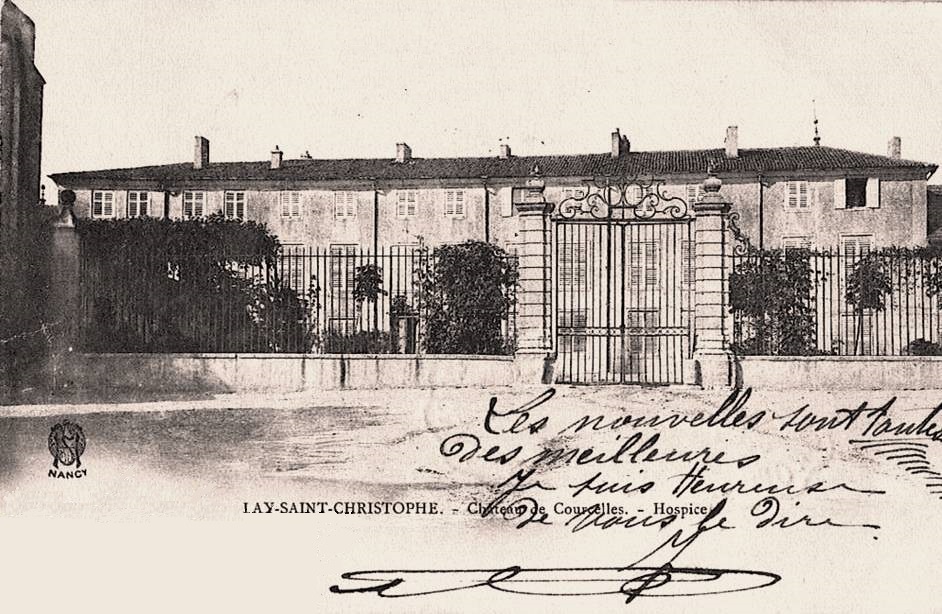 Les nouvelles sont toutes
des meilleures
Je suis heureuse
de vous le dire
NANCY
LAY-SAINT-CHRISTOPHE. - Château de Courcelles. - Hospice